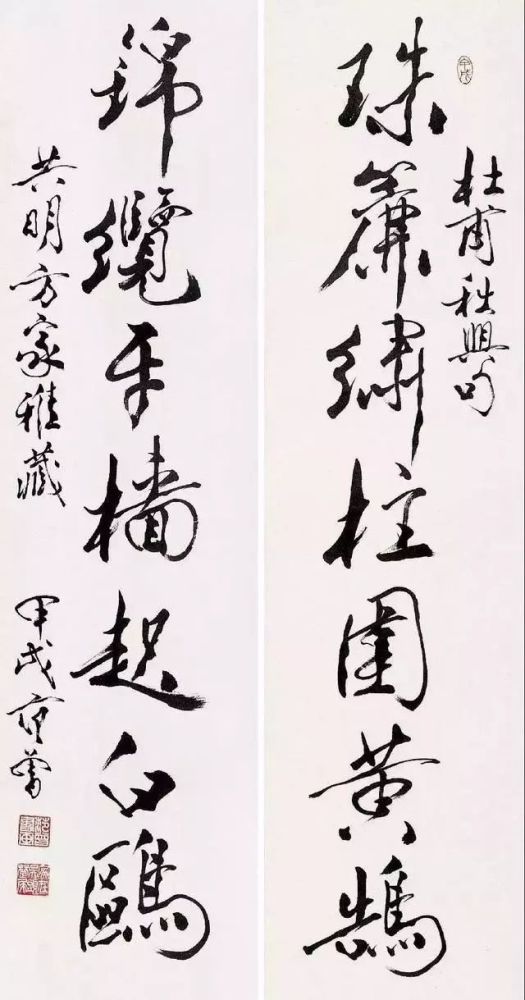 杜甫秋興句
珠簾繡柱圍黃鵠
錦纜牙檣起白鷗
共明方家雅藏 甲戌范曾